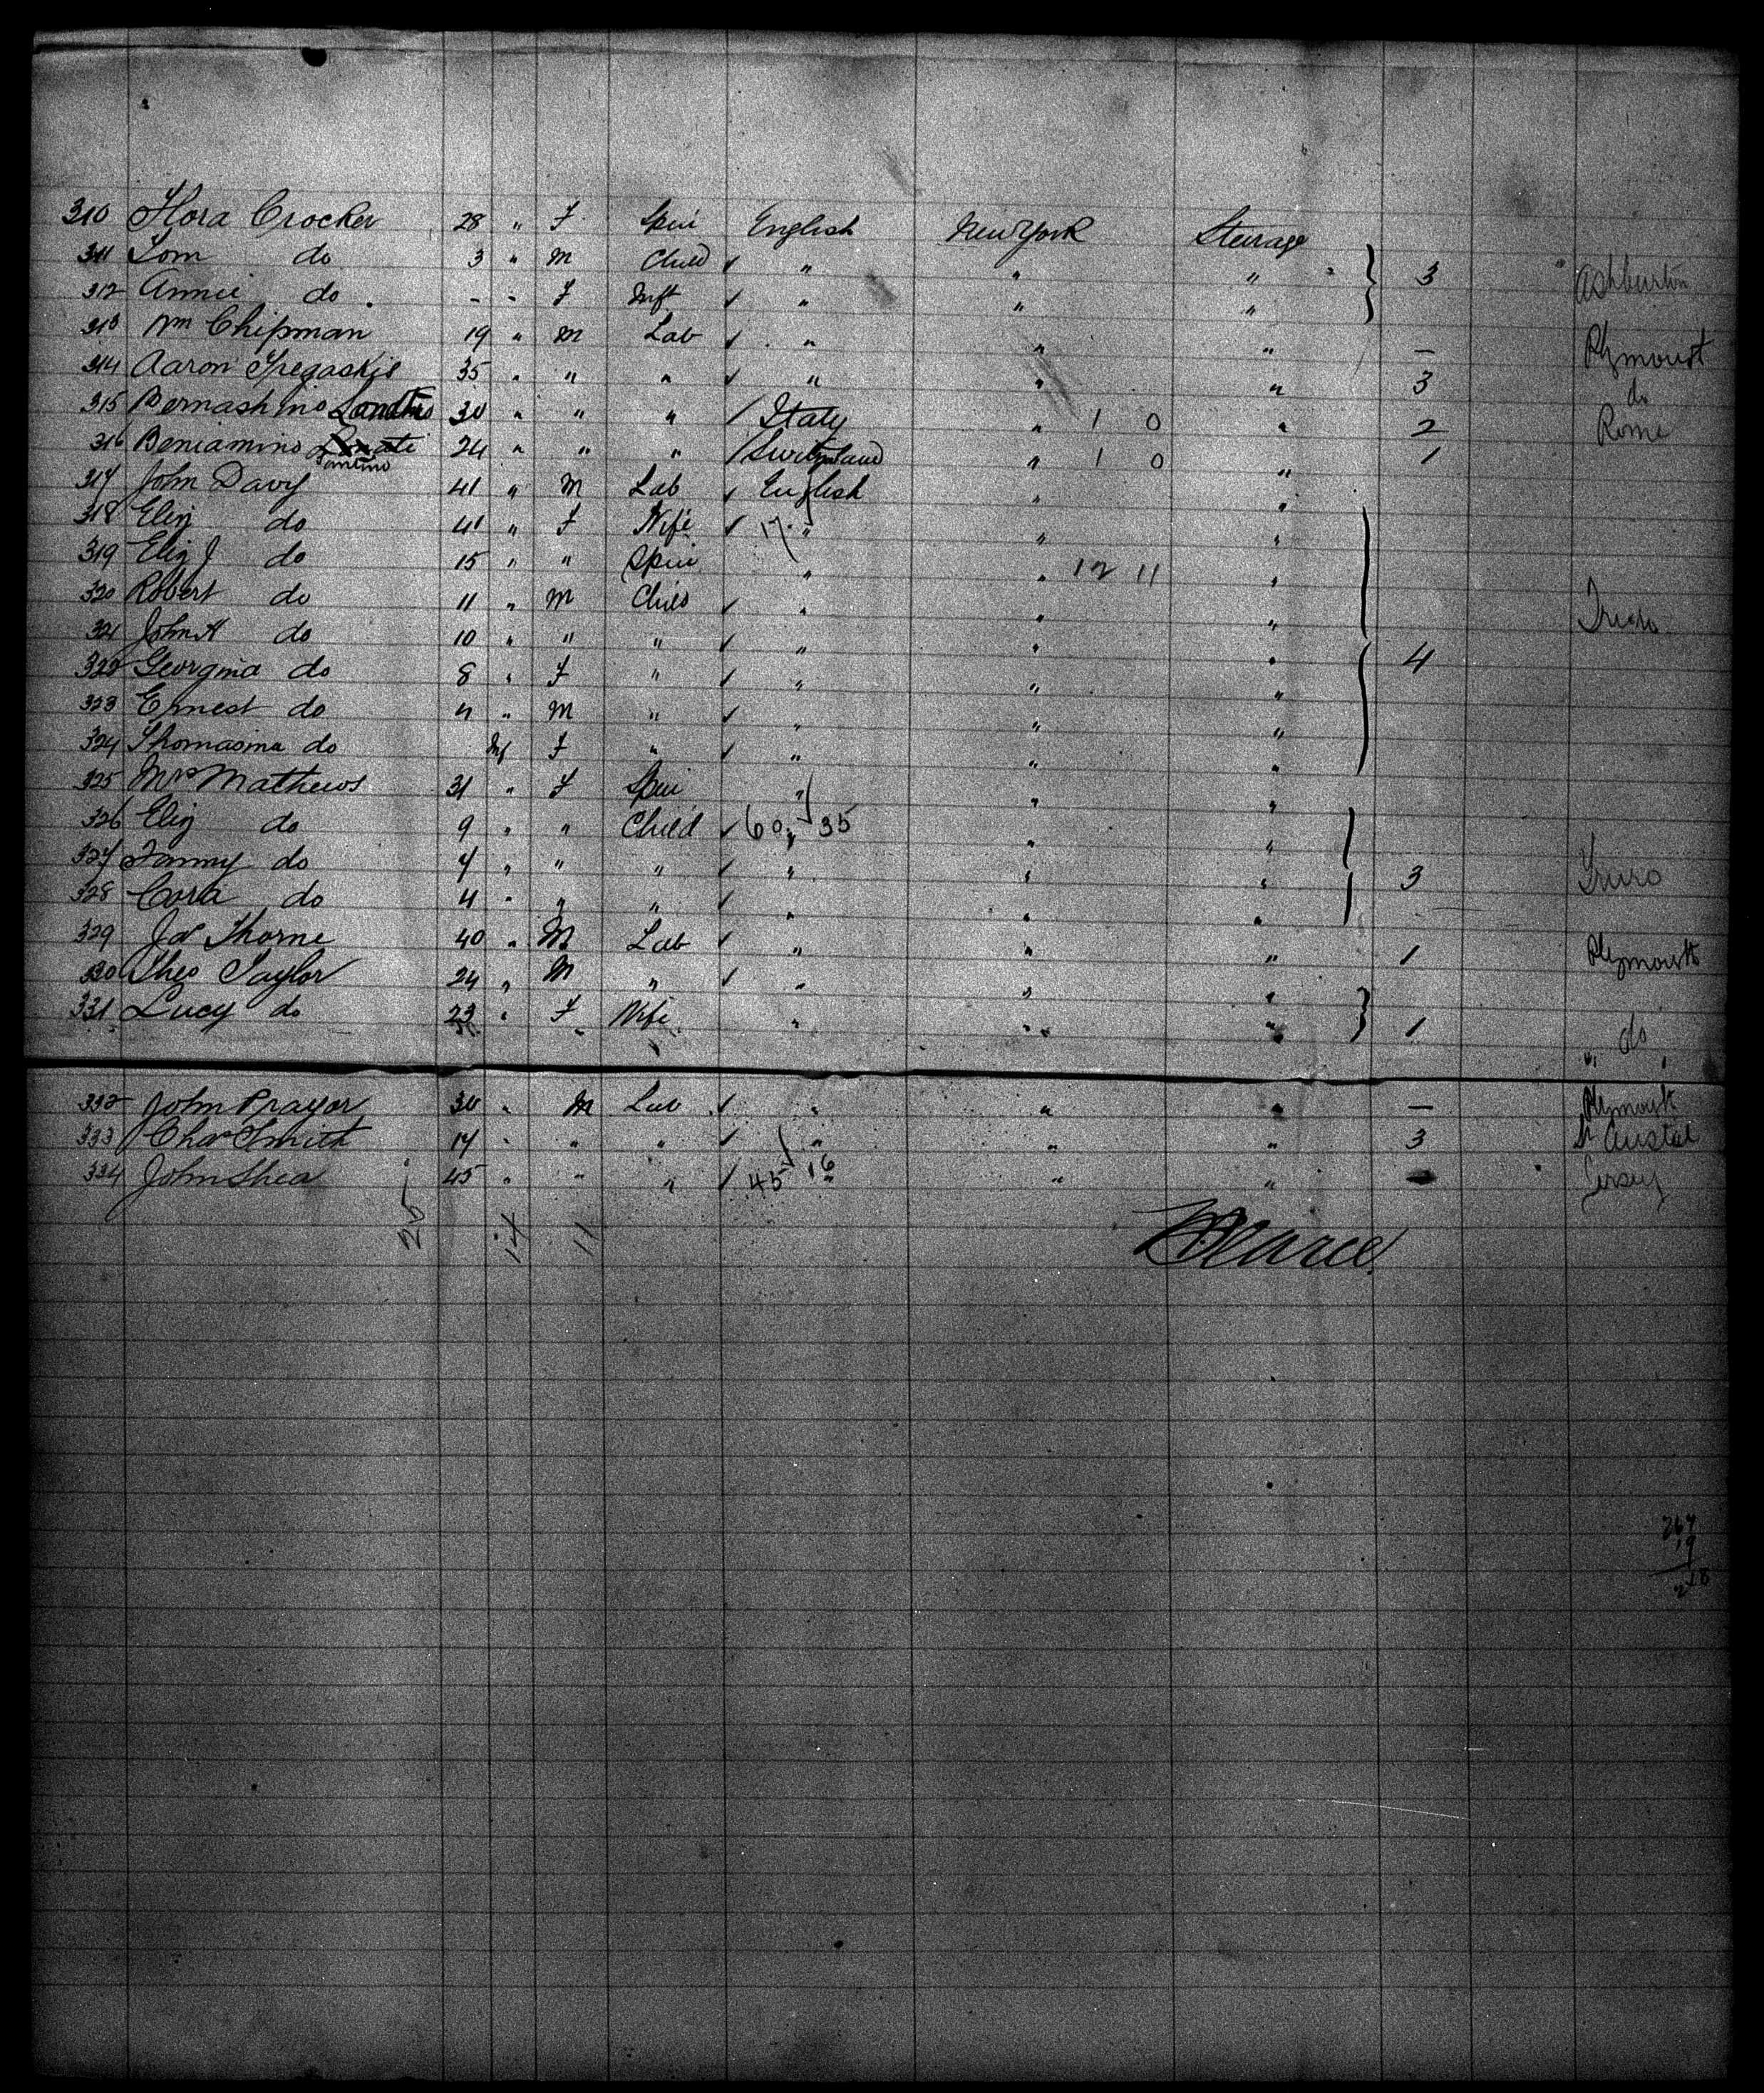 310 Flora Crocker 28 " F Spin English New York Steerage
311 Tom do 3 " M Child ✓ " " " 3 Ashburton
312 Annie do . - - F Inft ✓ " " "
313 Wm Chipman 19 " M Lab ✓ " " " — Plymouth
314 Aaron Tregaskis 35 " " " ✓ " " " 3 do
315 Bernashino 30 " " " / Italy " 1 0 " 2 Rome
316 Beniamino 24 " " " / Switzerland " 1 0 " 1
Santino
317 John Davy 41 " M Lab ✓ English " "
318 Eliz do 41 " F Wife ✓ 17 " " "
319 Eliz J do 15 " " Spin " " 12 11 "
320 Robert do 11 " M Child ✓ " " " Truro
321 John H do 10 " " " ✓ " " " 4
322 Georgina do 8 " F " ✓ " " "
323 Ernest do 4 " M " ✓ " " "
324 Thomasina do Inf F " ✓ " " "
325 Mrs Mathews 31 " F Spin " " "
326 Eliz do 9 " " Child ✓ 60 " 35 " "
327 Fanny do 7 " " " ✓ " " " 3 Truro
328 Cora do 4 " " " ✓ " " "
329 Jas Thorne 40 " M Lab ✓ " " " 1 Plymouth
330 Theo Taylor 24 " M " ✓ " " "
331 Lucy do 23 " F Wife " " " 1 do
332 John Prayor 30 " M Lab ✓ " " " — Plymouth
333 Chas Smith 17 " " " ✓ " " " 3 St Austal
334 John Shea 45 " " " ✓ 45 16 " " " Jersey
25 14 11
267
19